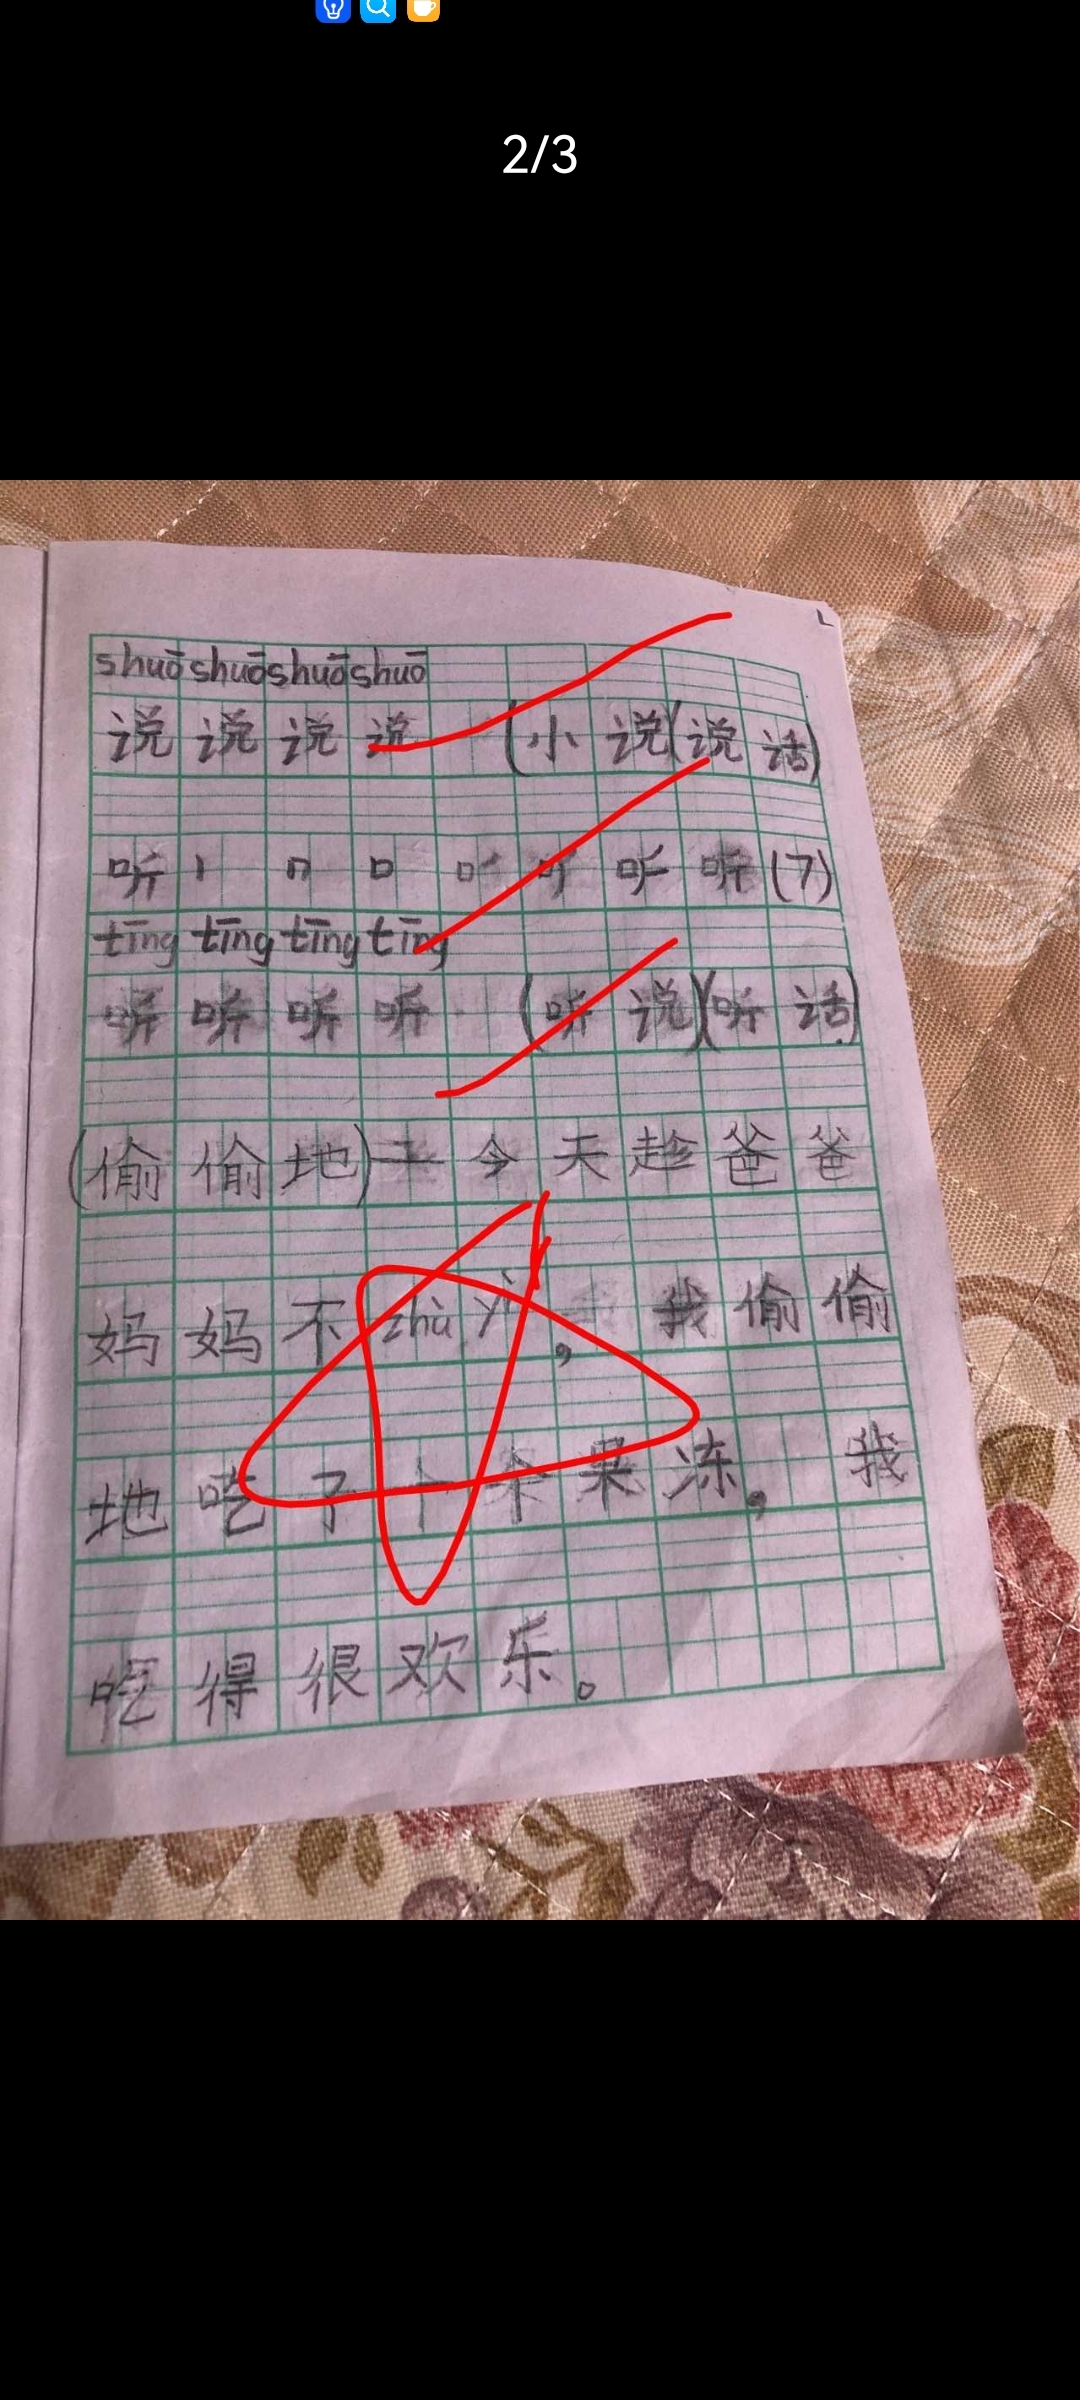 2/3
shuō shuō shuō shuō
说 说 说 说 (小 说)(说 话)
听 丨 冂 口 口 听 听 听 (7)
tīng tīng tīng tīng
听 听 听 听 (听 说)(听 话)
(偷 偷 地) 今 天 趁 爸 爸
妈 妈 不 zhù yì , 我 偷 偷
地 吃 了 个 果 冻 , 我
吃 得 很 欢 乐 。